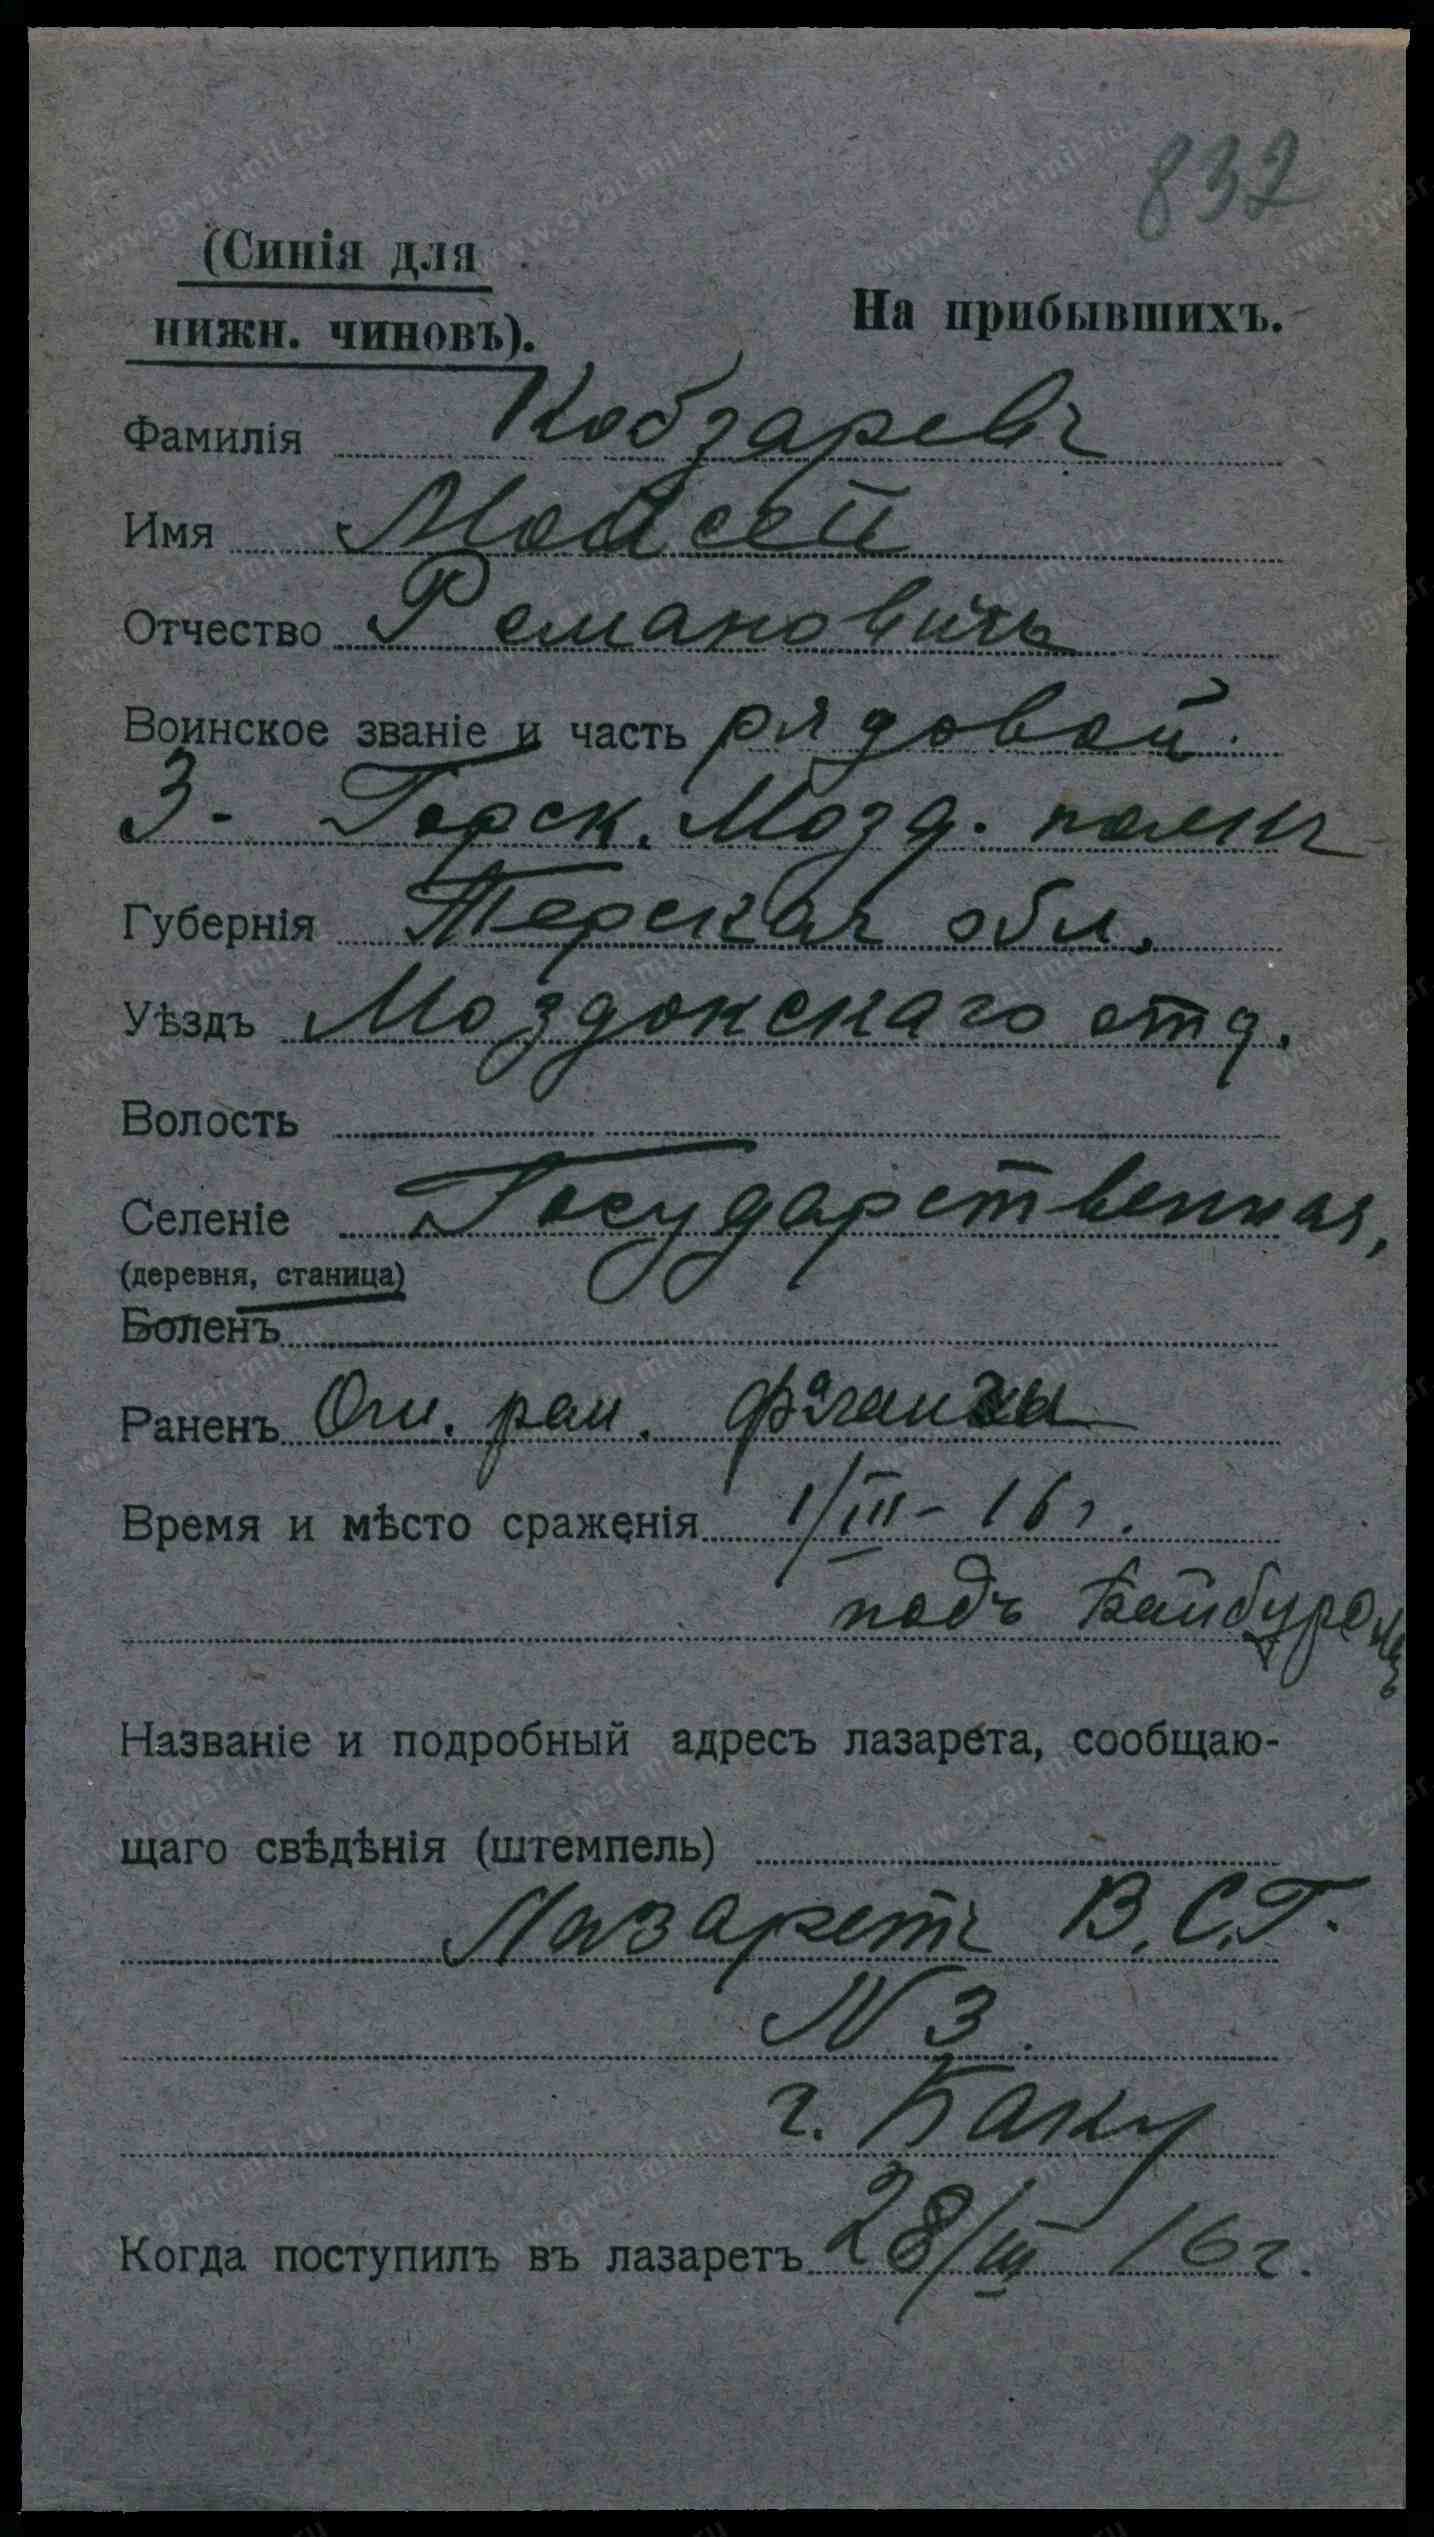 832
(Синія для
нижн. чиновъ).
На прибывшихъ.
Фамилія Кобзаревъ
Имя Моисей
Отчество Романовичъ
Воинское званіе и часть рядовой.
3- Горск. Мозд. полкъ
Губернія Терская обл.
Уѣздъ Моздокскаго отд.
Волость
Селеніе Государственная,
(деревня, станица)
Боленъ
Раненъ Огн. ран. фаланги
Время и мѣсто сраженія 1/III - 16 г.
подъ
Названіе и подробный адресъ лазарета, сообщаю-
щаго свѣдѣнія (штемпель)
Лазаретъ В.С.Г.
N 3.
г. Баку
Когда поступилъ въ лазаретъ 28/III 16 г.